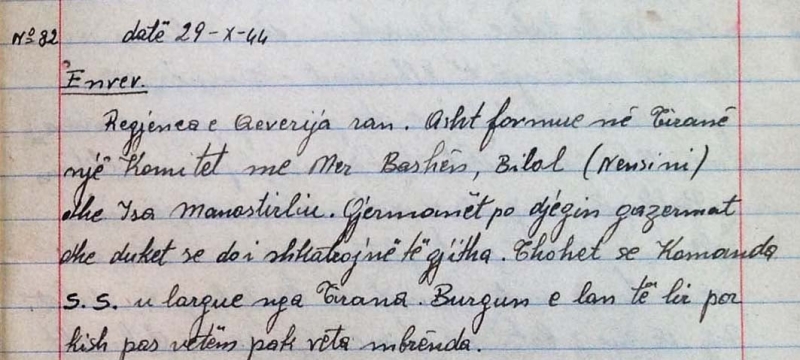 Nº 32 datë 29-X-44
Enver.
Regjenca e Qeverija ran. Asht formue në Tiranë
një Komitet me Mer Bashën, Bilal (Neusini)
dhe Isa Manastirliu. Gjermanët po djegin gazermat
dhe duket se do i shkatrojnë të gjitha. Thohet se Komanda
S.S. u largue nga Tirana. Burgun e lan të lir por
kish pas vetëm pak vëta mbrënda.